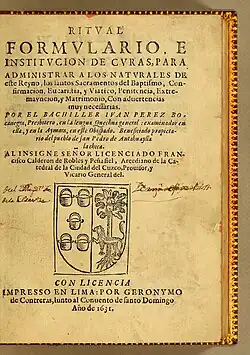 RITUAL
FORMVLARIO, E
INSTITVCION DE CVRAS, PARA
ADMINISTRAR A LOS NATVRALES DE
este Reyno, los santos Sacramentos del Baptismo, Con-
firmacion, Eucaristia, y Viatico, Penitencia, Extre-
mavncion, y Matrimonio, Con aduertencias
muy necessarias.
POR EL BACHILLER IVAN PEREZ BO-
canegra, Presbytero, en la lengua Quechua general: examinador en
ella, y en la Aymara, en este Obispado. Beneficiado propieta-
rio del pueblo de san Pedro de Antahuaylla
la chica.
AL INSIGNE SEÑOR LICENCIADO FRAN-
cisco Calderon de Robles y Peñafiel, Arcediano de la Ca-
tedral de la Ciudad del Cuzco, Prouisor, y
Vicario General del.
CON LICENCIA
IMPRESSO EN LIMA: POR GERONYMO
de Contreras, Iunto al Conuento de santo Domingo
Año de 1631.